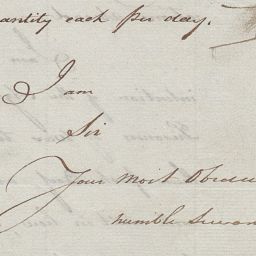 antity each per day.
I am
Sir
Your Most Obedie
humble Servan